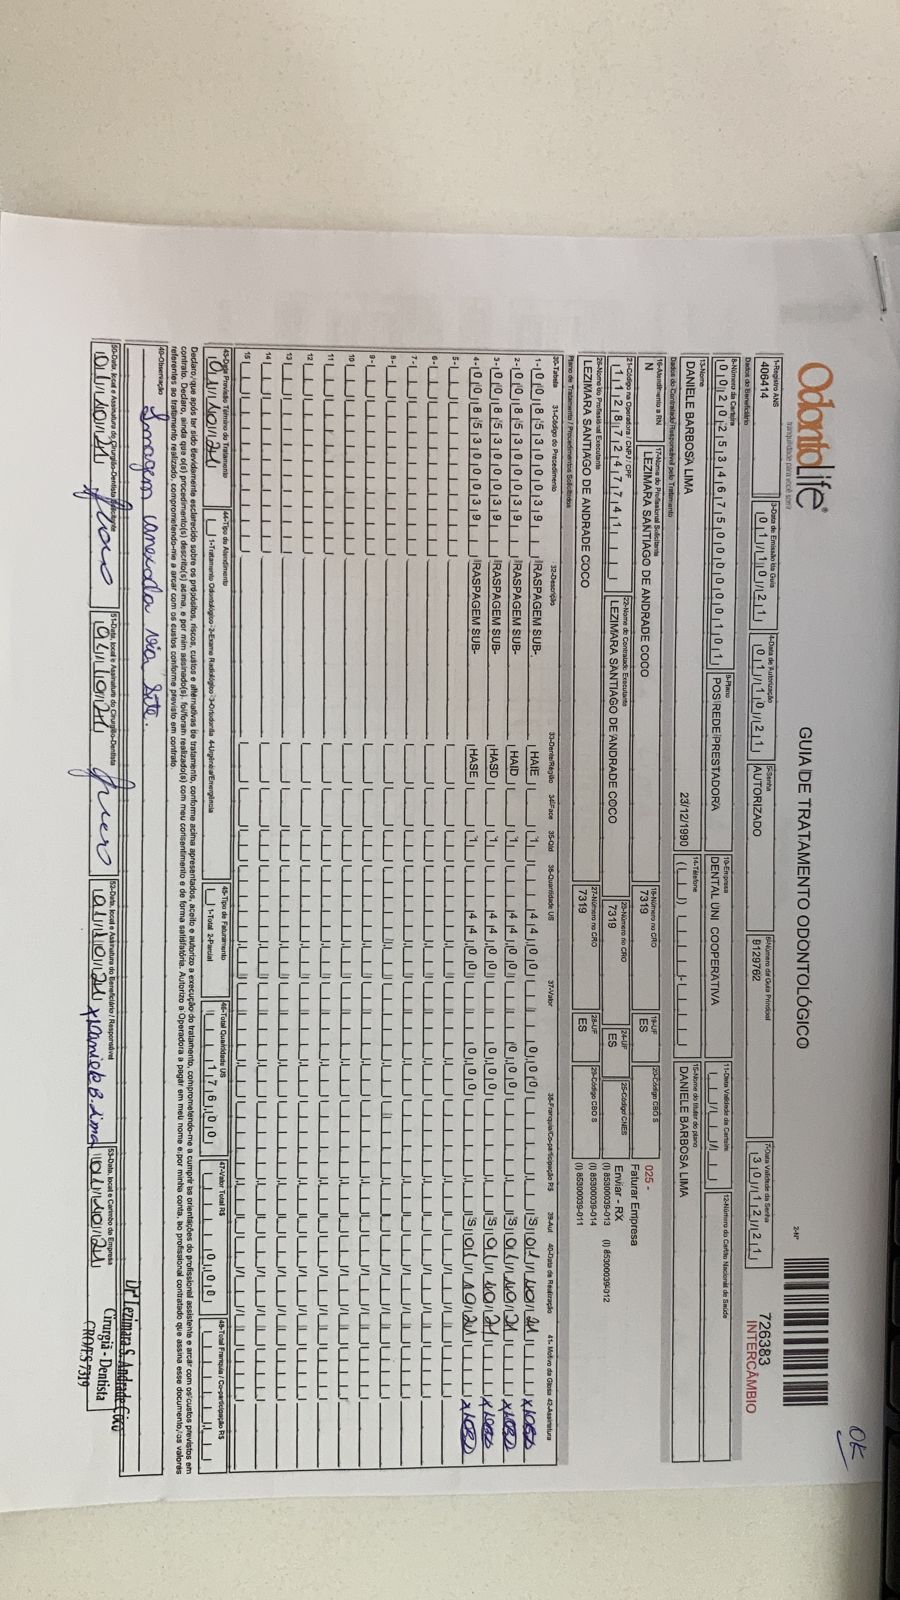 OK
OdontoLife®
tranquilidade para você sorrir
GUIA DE TRATAMENTO ODONTOLÓGICO
2-Nº
726383
INTERCÂMBIO
1-Registro ANS
406414
3-Data de Emissão da Guia
01/10/21
4-Data de Autorização
01/10/21
5-Senha
AUTORIZADO
6-Número da Guia Principal
8129762
7-Data Validade da Senha
30/12/21
Dados do Beneficiário
8-Número da Carteira
00202534675000000101
9-Plano
POS REDE PRESTADORA
10-Empresa
DENTAL UNI COOPERATIVA
11-Data Validade da Carteira
12-Número do Cartão Nacional de Saúde
13-Nome
DANIELE BARBOSA LIMA
23/12/1990
14-Telefone
15-Nome do titular do plano
DANIELE BARBOSA LIMA
Dados do Contratado Responsável pelo Tratamento
16-Atendimento a RN
N
17-Nome do Profissional Solicitante
LEZIMARA SANTIAGO DE ANDRADE COCO
18-Número no CRO
7319
19-UF
ES
20-Código CBO S
025 -
Faturar Empresa
21-Código na Operadora / CNPJ / CPF
11287247741
22-Nome do Contratado Executante
LEZIMARA SANTIAGO DE ANDRADE COCO
23-Número no CRO
7319
24-UF
ES
25-Código CNES
Enviar - RX
(I) 85300039-013 (I) 85300039-012
(I) 85300039-014
(I) 85300039-011
26-Nome do Profissional Executante
LEZIMARA SANTIAGO DE ANDRADE COCO
27-Número no CRO
7319
28-UF
ES
29-Código CBO S
Plano de Tratamento / Procedimentos Solicitados
30-Tabela 31-Código do Procedimento 32-Descrição 33-Dente/Região 34-Face 35-Qtd 36-Quantidade US 37-Valor 38-Franquia/Co-participação R$ 39-Aut 40-Data de Realização 41-Motivo da Glosa 42-Assinatura
1- 00 85300039 RASPAGEM SUB- HAIE 1 44,00 0,00 S 01/10/21
2- 00 85300039 RASPAGEM SUB- HAID 1 44,00 0,00 S 01/10/21
3- 00 85300039 RASPAGEM SUB- HASD 1 44,00 0,00 S 01/10/21
4- 00 85300039 RASPAGEM SUB- HASE 1 44,00 0,00 S 01/10/21
5-
6-
7-
8-
9-
10
11
12
13
14
15
43-Data Previsão Término do Tratamento
01/10/21
44-Tipo de Atendimento
1-Tratamento Odontológico 2-Exame Radiológico 3-Ortodontia 4-Urgência/Emergência
45-Tipo de Faturamento
1-Total 2-Parcial
46-Total Quantidade US
176,00
47-Valor Total R$
0,00
48-Total Franquia / Co-participação R$
Declaro, que após ter sido devidamente esclarecido sobre os propósitos, riscos, custos e alternativas de tratamento, conforme acima apresentados, aceito e autorizo a execução do tratamento, comprometendo-me a cumprir as orientações do profissional assistente e arcar com os custos previstos em
contrato. Declaro, ainda que o(s) procedimento(s) descrito(s) acima, e por mim assinado(s), foi/foram realizado(s) com meu consentimento e de forma satisfatória. Autorizo a Operadora a pagar em meu nome e por minha conta, ao profissional contratado que assina esse documento, os valores
referentes ao tratamento realizado comprometendo-me a arcar com os custos conforme previsto em contrato.
49-Observação
Imagem anexada via site.
50-Data, local e Assinatura do Cirurgião-Dentista Solicitante
01/10/21
51-Data, local e Assinatura do Cirurgião-Dentista
01/10/21
52-Data, local e Assinatura do Beneficiário / Responsável
01/10/21 x Daniele B. Lima
53-Data, local e Carimbo da Empresa
01/10/21
Drª Lezimara S. Andrade Coco
Cirurgiã - Dentista
CRO/ES 7319